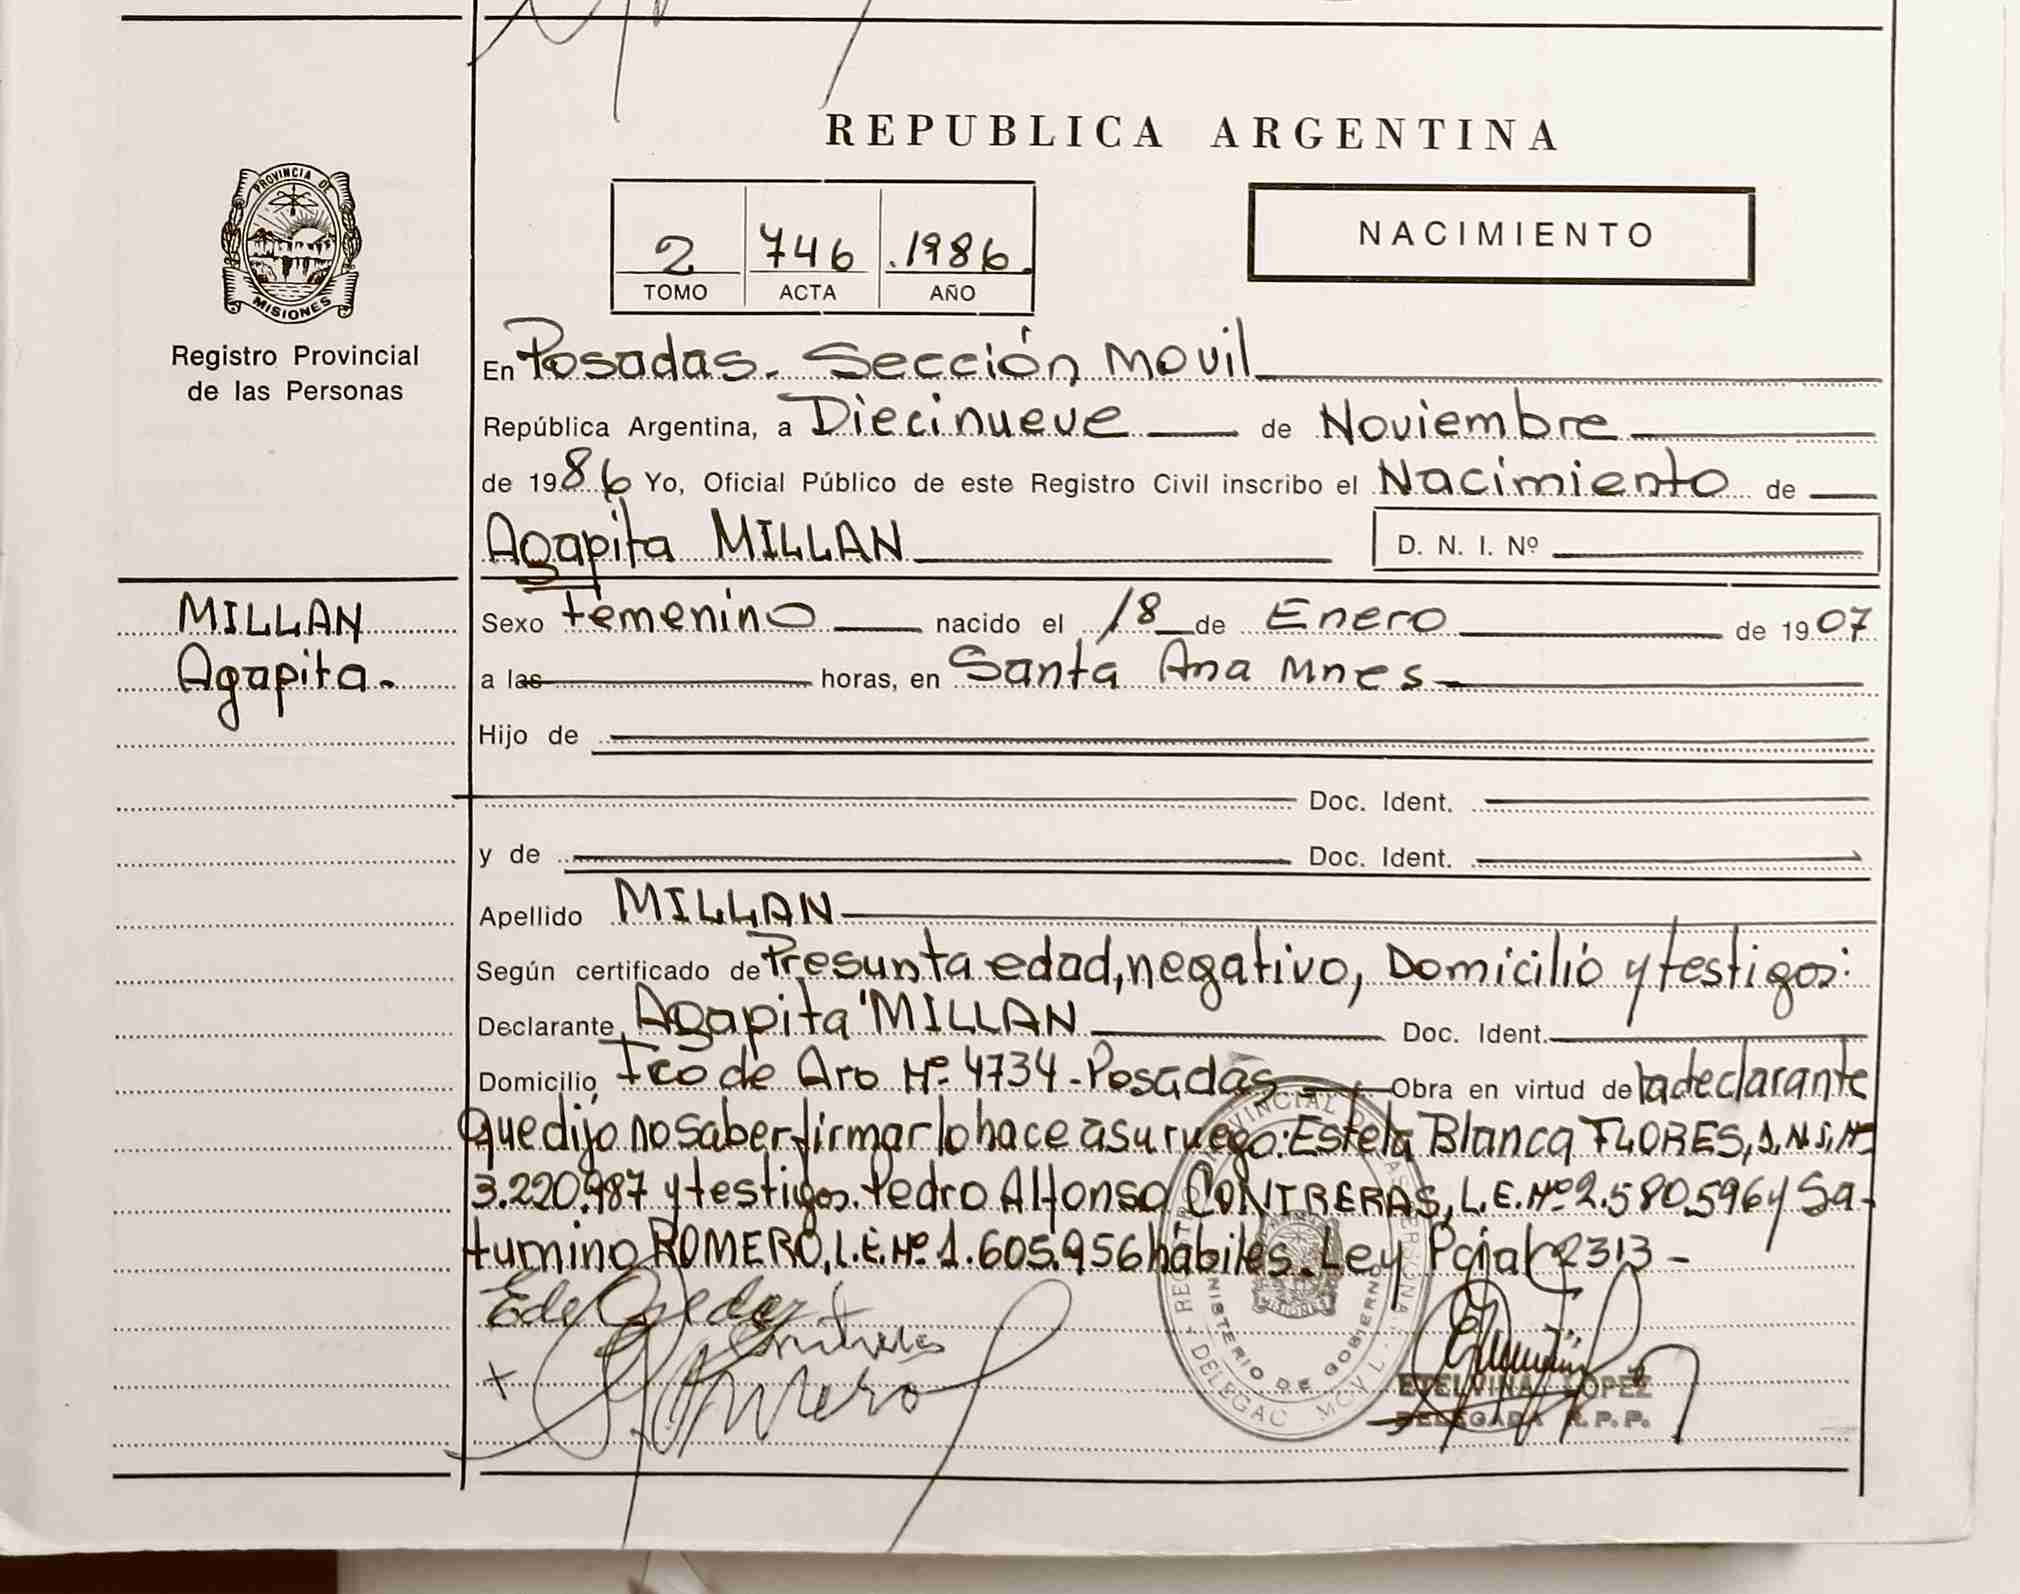 REPUBLICA ARGENTINA
PROVINCIA DE
MISIONES
Registro Provincial
de las Personas
2 746 .1986.
TOMO ACTA AÑO
NACIMIENTO
En Posadas. Sección movil
República Argentina, a Diecinueve de Noviembre
de 1986 Yo, Oficial Público de este Registro Civil inscribo el Nacimiento de
Agapita MILLAN D. N. I. Nº
MILLAN
Agapita.
Sexo femenino nacido el 18 de Enero de 1907
a las horas, en Santa Ana Mnes
Hijo de
Doc. Ident.
y de Doc. Ident.
Apellido MILLAN
Según certificado de Presunta edad, negativo, Domicilio y testigos:
Declarante Agapita MILLAN Doc. Ident.
Domicilio Fco de Aro Nº 4734 - Posadas Obra en virtud de la declarante
que dijo no saber firmar lo hace a su ruego: Estela Blanca FLORES,
3.220.987 y testigos. Pedro Alfonso CONTRERAS, L.E. Nº 2.580.596 y Sa-
turnino ROMERO, L.E. Nº 1.605.956 hábiles. Ley Pcial 2313 -
Contreras
+ Romero
MINISTERIO DE GOBIERNO
ETELVINA LOPEZ
DELEGADA R.P.P.